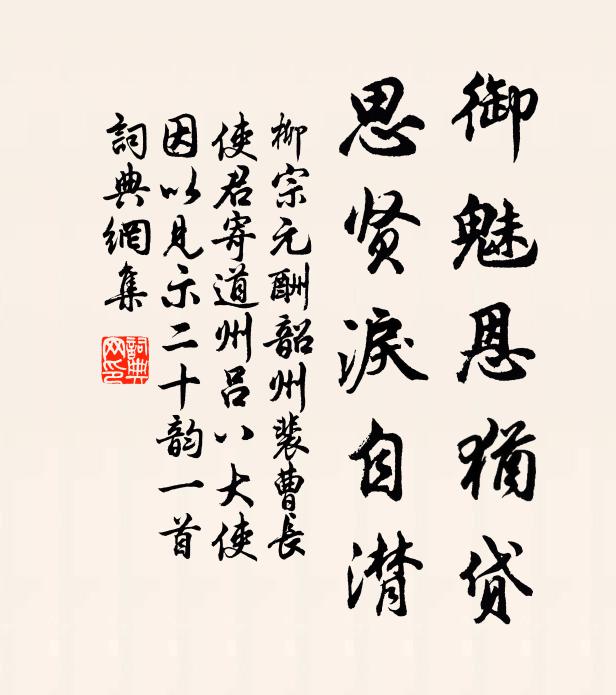 御魅恩犹贷
思贤泪自潸
柳宗元酬韶州裴曹长
使君寄道州吕八大使
因以见示二十韵一首
詞典網集
詞典網印